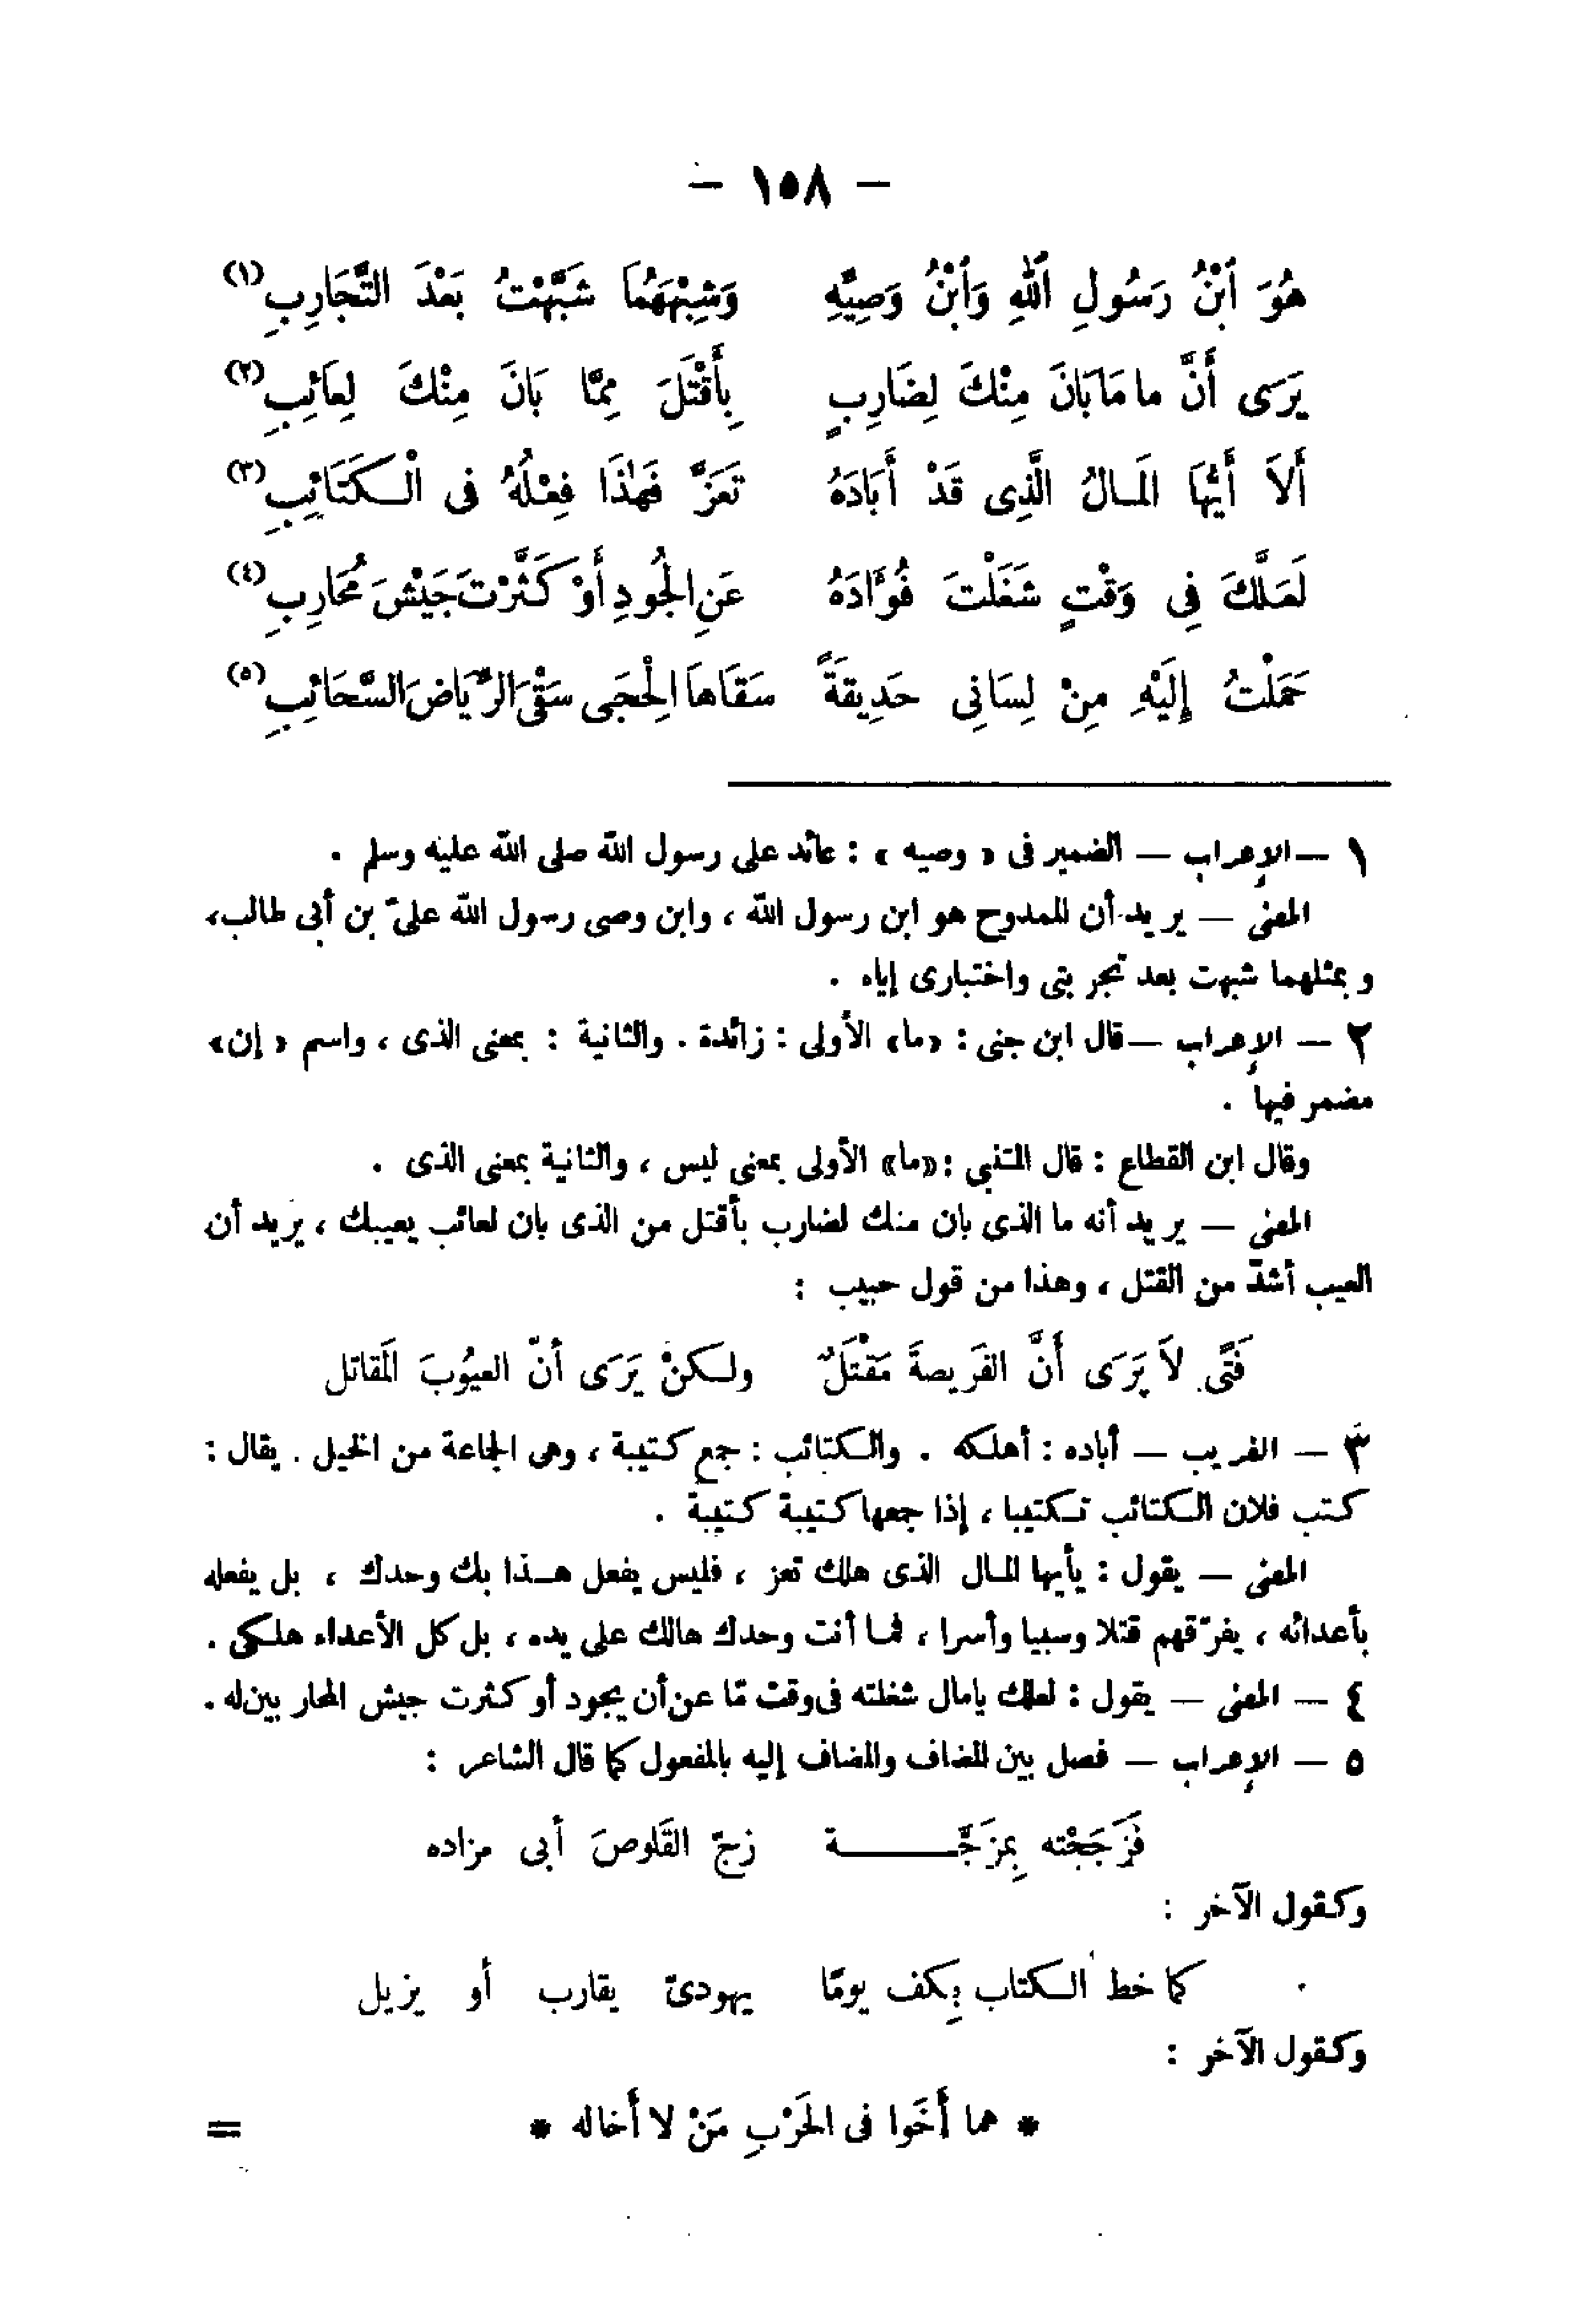 – ١٥٨ –
هُوَ ٱبْنُ رَسُولِ ٱللهِ وَٱبْنُ وَصِيِّهِ وَشِبْهَهُمَا شَبَّهْتُ بَعْدَ التَّجَارِبِ (١)
يَرَى أَنَّ ما مَا بَانَ مِنْكَ لِضَارِبٍ بِأَقْتَلَ مِمَّا بَانَ مِنْكَ لِعَائِبِ (٢)
أَلاَ أَيُّهَا المَالُ الَّذِى قَدْ أَبَادَهُ تَعَزَّ فَهٰذَا فِعْلُهُ فى الْكَتَائِبِ (٣)
لَعَلَّكَ فِى وَقْتٍ شَغَلْتَ فُؤَادَهُ عَنِ الْجُودِ أَوْ كَثَّرْتَ جَيْشَ مُحَارِبِ (٤)
حَمَلْتُ إِلَيْهِ مِنْ لِسَانِى حَدِيقَةً سَقَاهَا الْحِجَى سَقْىَ الرِّيَاضَ السَّحَائِبِ (٥)
١ – الإعراب – الضمير فى « وصيه » : عائد على رسول الله صلى الله عليه وسلم .
المعنى – يريد أن الممدوح هو ابن رسول الله ، وابن وصى رسول الله علىّ بن أبى طالب،
وبمثلهما شبهت بعد تجربتى واختبارى إياه .
٢ – الإعراب – قال ابن جنى : «ما» الأولى : زائدة . والثانية : بمعنى الذى ، واسم « إن»
مضمر فيها .
وقال ابن القطاع : قال المتنبى : «ما» الأولى بمعنى ليس ، والثانية بمعنى الذى .
المعنى – يريد أنه ما الذى بان منك لضارب بأقتل من الذى بان لعائب يعيبك ، يريد أن
العيب أشدّ من القتل ، وهذا من قول حبيب :
فَتًى لاَ يَرَى أَنَّ الفَريصةَ مَقْتَلٌ ولكنْ يَرَى أنّ العيُوبَ المَقاتل
٣ – الغريب – أباده : أهلكه . والكتائب : جمع كتيبة ، وهى الجماعة من الخيل . يقال :
كتب فلان الكتائب تكتيبا ، إذا جمعها كتيبة كتيبة .
المعنى – يقول : يأيها المال الذى هلك تعز ، فليس يفعل هذا بك وحدك ، بل يفعله
بأعدائه ، يفرّقهم قتلا وسبيا وأسرا ، فما أنت وحدك هالك على يده ، بل كل الأعداء هلكى .
٤ – المعنى – يقول : لعلك يامال شغلته فى وقت مّا عن أن يجود أو كثرت جيش المحاربين له .
٥ – الإعراب – فصل بين المضاف والمضاف إليه بالمفعول كما قال الشاعر :
فَزَجَجْته بِمزَجَّة زجّ القَلوصَ أبى مزاده
وكقول الآخر :
كما خط الكتاب بِكف يومًا يهودىّ يقارب أو يزيل
وكقول الآخر :
* هما أَخَوا فى الحَرْبِ مَنْ لا أخاله *
=